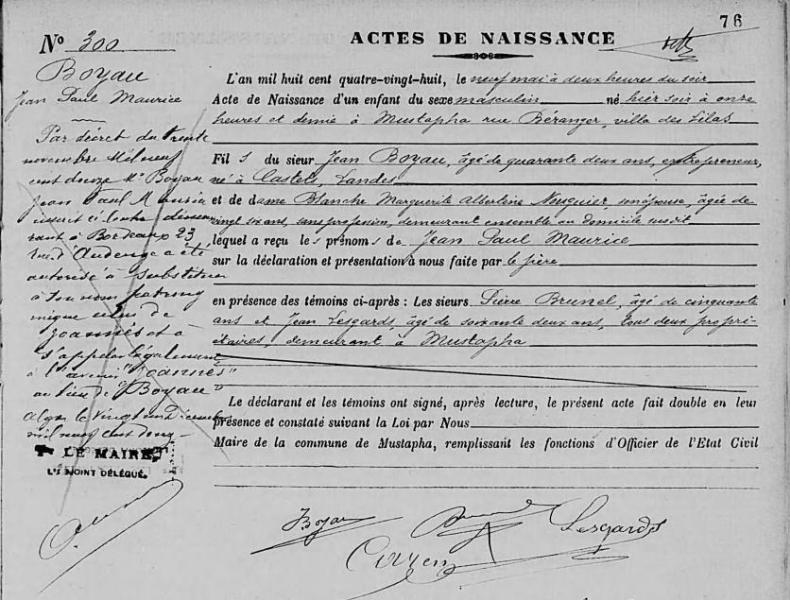 76
N° 300
ACTES DE NAISSANCE
Boyau
Jean Paul Maurice
Par décret du trente
novembre Mil neuf
cent douze Mr Boyau
Jean Paul Maurice
inscrit ci contre demeu
rant à Bordeaux 23
rue d'Audenge a été
autorisé à substituer
à son nom patrony
mique celui de
Joannès et à
s'appeler légalement
à l'avenir "Joannès"
au lieu de "Boyau"
Alger le vingt un Décembre
mil neuf cent douze
LE MAIRE
L'ADJOINT DÉLÉGUÉ.
L'an mil huit cent quatre-vingt-huit, le neuf mai à deux heures du soir
Acte de Naissance d'un enfant du sexe masculin né hier soir à onze
heures et demie à Mustapha rue Béranger, villa des Lilas
Fils du sieur Jean Boyau, âgé de quarante deux ans, entrepreneur,
né à Castets, Landes
et de dame Blanche Marguerite Albertine Nouguier, son épouse, âgée de
vingt six ans, sans profession, demeurant ensemble au domicile susdit
lequel a reçu les prénoms de Jean Paul Maurice
sur la déclaration et présentation à nous faite par le père
en présence des témoins ci-après : Les sieurs Pierre Brunel, âgé de cinquante
ans et Jean Lesgards, âgé de soixante deux ans, tous deux propri-
étaires, demeurant à Mustapha
Le déclarant et les témoins ont signé, après lecture, le présent acte fait double en leur
présence et constaté suivant la Loi par Nous
Maire de la commune de Mustapha, remplissant les fonctions d'Officier de l'Etat Civil
Boyau Lesgards